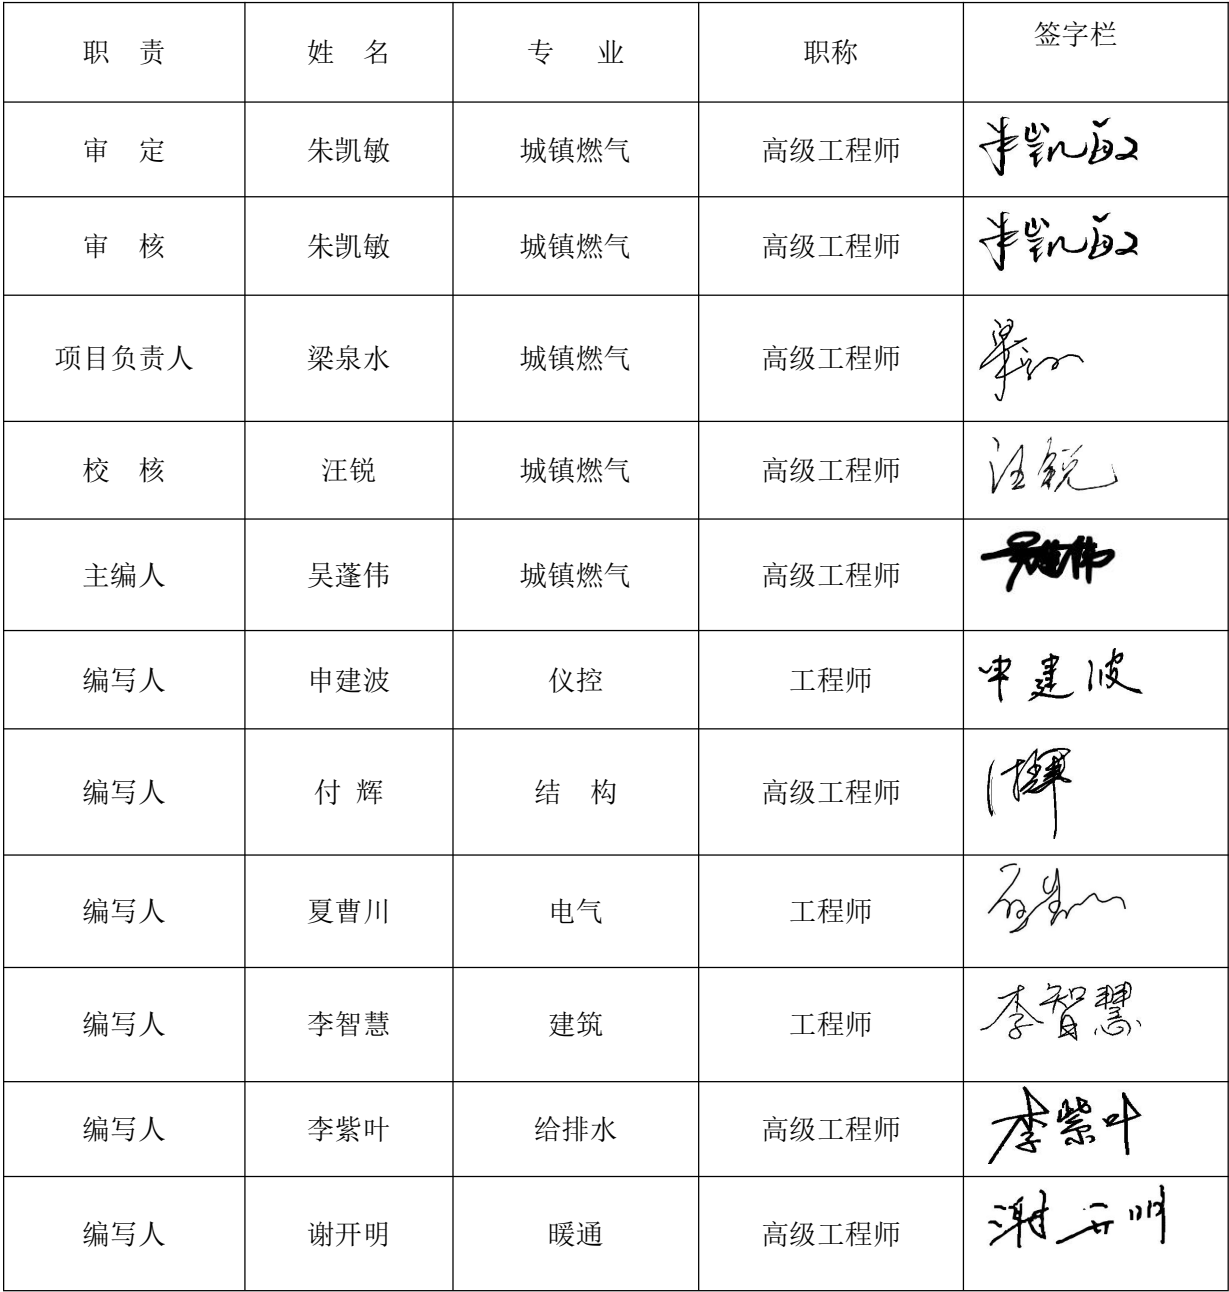 职 责 姓 名 专 业 职称 签字栏
审 定 朱凯敏 城镇燃气 高级工程师 朱凯敏
审 核 朱凯敏 城镇燃气 高级工程师 朱凯敏
项目负责人 梁泉水 城镇燃气 高级工程师
校 核 汪锐 城镇燃气 高级工程师 汪锐
主编人 吴蓬伟 城镇燃气 高级工程师 吴蓬伟
编写人 申建波 仪控 工程师 申建波
编写人 付 辉 结 构 高级工程师 付辉
编写人 夏曹川 电气 工程师
编写人 李智慧 建筑 工程师 李智慧
编写人 李紫叶 给排水 高级工程师 李紫叶
编写人 谢开明 暖通 高级工程师 谢开明